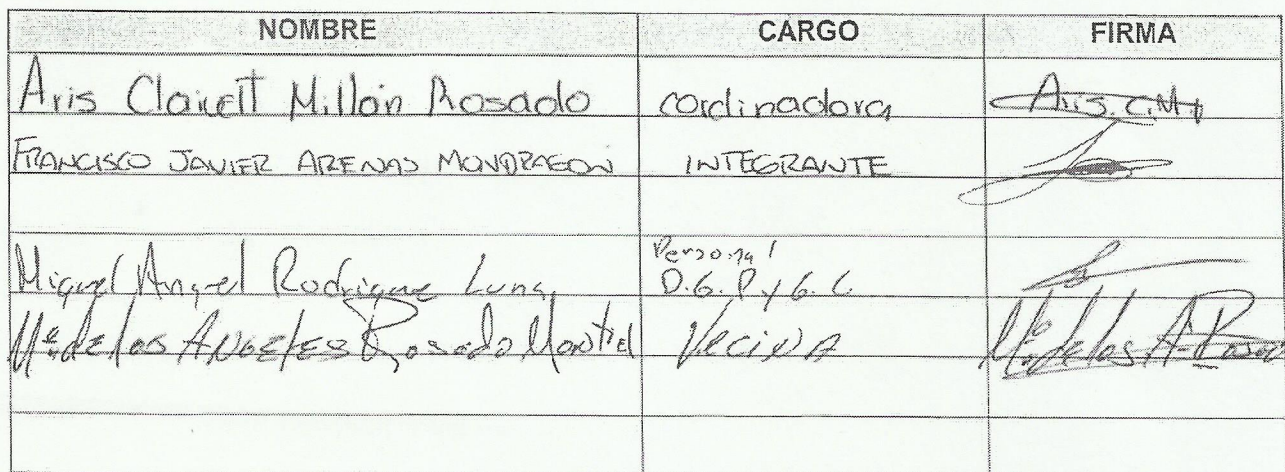 NOMBRE CARGO FIRMA
Aris Clairett Millán Rosado cordinadora Aris. C.M.
FRANCISCO JAVIER ARENAS MONDRAGON INTEGRANTE
Personal
Miguel Angel Rodrigue Luna D.G.P y G.C.
Ma de los ANGELES Rosado Montiel Vecina Ma de los A. Rosado